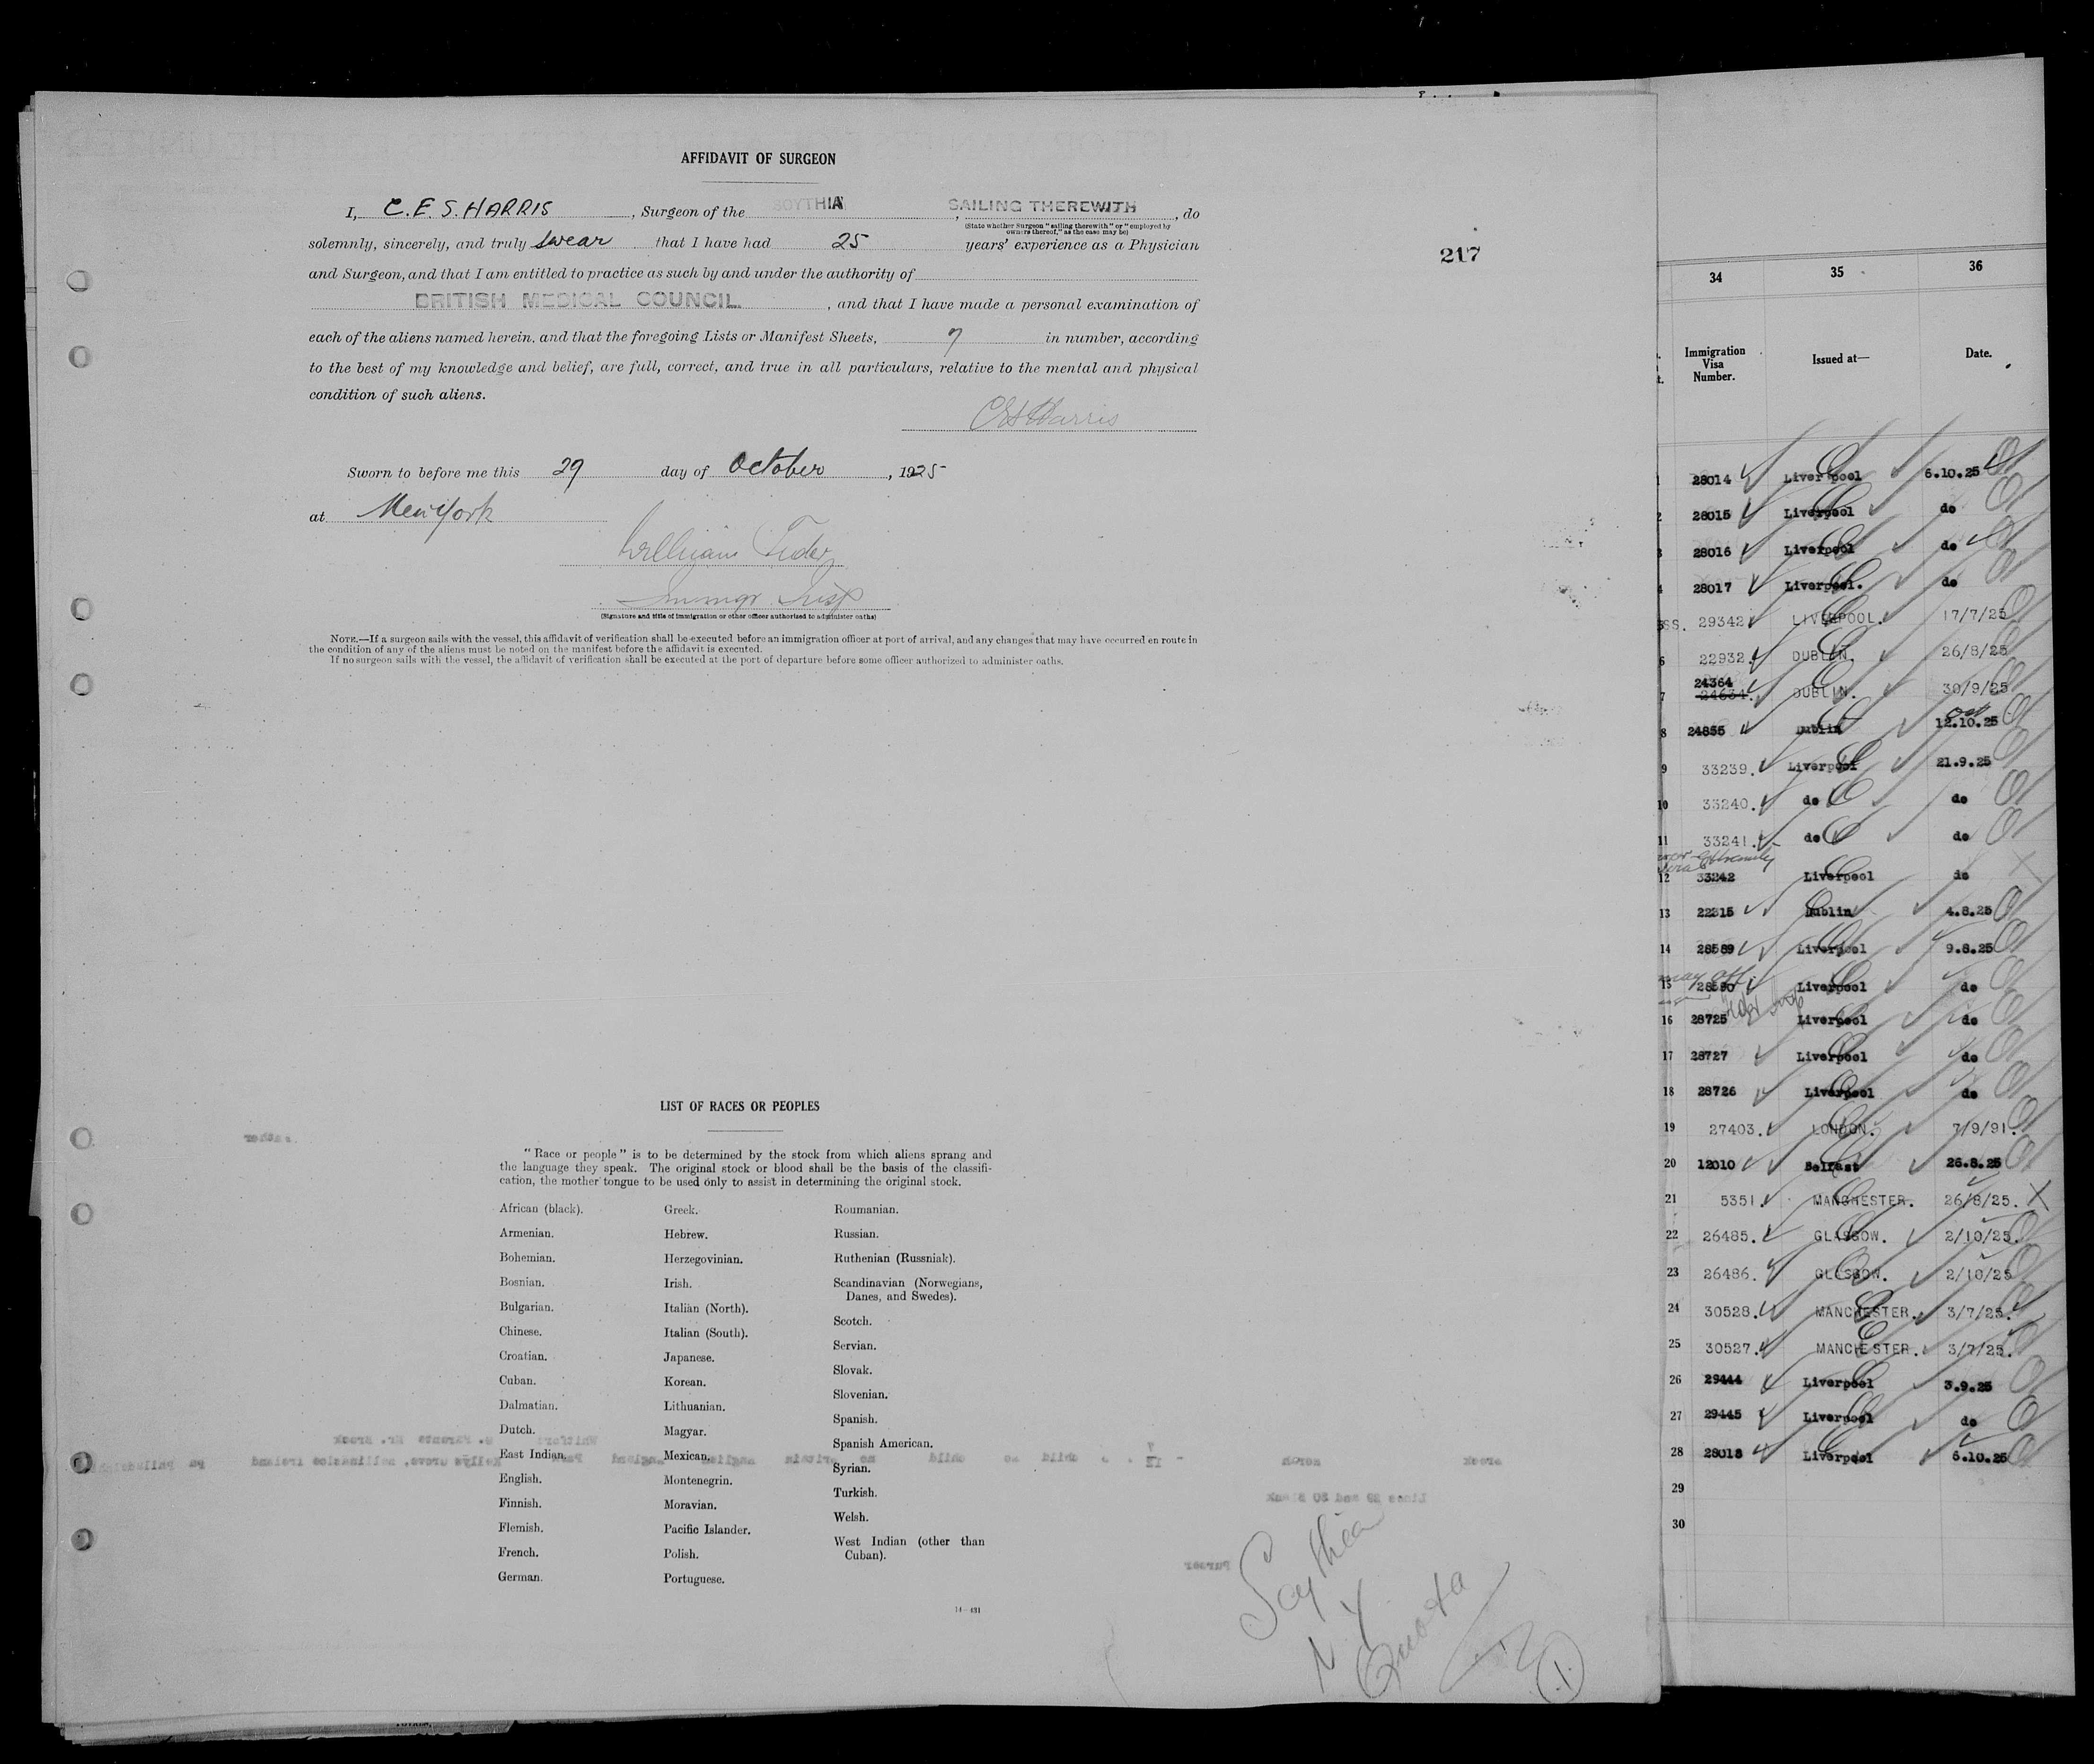 AFFIDAVIT OF SURGEON
I, C. E. S. HARRIS, Surgeon of the SCYTHIA, SAILING THEREWITH, do
(State whether Surgeon "sailing therewith" or "employed by owners thereof," as the case may be)
solemnly, sincerely, and truly swear that I have had 25 years' experience as a Physician
and Surgeon, and that I am entitled to practice as such by and under the authority of
BRITISH MEDICAL COUNCIL, and that I have made a personal examination of
each of the aliens named herein, and that the foregoing Lists or Manifest Sheets, 7 in number, according
to the best of my knowledge and belief, are full, correct, and true in all particulars, relative to the mental and physical
condition of such aliens.
CES Harris
Sworn to before me this 29 day of October, 1925
at New York
William
Immgr Insp
(Signature and title of immigration or other officer authorized to administer oaths)
NOTE.—If a surgeon sails with the vessel, this affidavit of verification shall be executed before an immigration officer at port of arrival, and any changes that may have occurred en route in
the condition of any of the aliens must be noted on the manifest before the affidavit is executed.
If no surgeon sails with the vessel, the affidavit of verification shall be executed at the port of departure before some officer authorized to administer oaths.
217
LIST OF RACES OR PEOPLES
"Race or people" is to be determined by the stock from which aliens sprang and
the language they speak. The original stock or blood shall be the basis of the classifi-
cation, the mother tongue to be used only to assist in determining the original stock.
African (black).
Armenian.
Bohemian.
Bosnian.
Bulgarian.
Chinese.
Croatian.
Cuban.
Dalmatian.
Dutch.
East Indian.
English.
Finnish.
Flemish.
French.
German.
Greek.
Hebrew.
Herzegovinian.
Irish.
Italian (North).
Italian (South).
Japanese.
Korean.
Lithuanian.
Magyar.
Mexican.
Montenegrin.
Moravian.
Pacific Islander.
Polish.
Portuguese.
Roumanian.
Russian.
Ruthenian (Russniak).
Scandinavian (Norwegians,
Danes, and Swedes).
Scotch.
Servian.
Slovak.
Slovenian.
Spanish.
Spanish American.
Syrian.
Turkish.
Welsh.
West Indian (other than
Cuban).
Scythia
N Y
Quota
1
34 35 36
Immigration Visa Number. Issued at— Date.
28014 Liverpool 6.10.25
2 28015 Liverpool do
3 28016 Liverpool do
4 28017 Liverpool. do
SS. 29342 LIVERPOOL. 17/7/25
6 22932. DUBLIN. 26/8/25
24364
7 24634. DUBLIN. 30/9/25
8 24855 Dublin 12.10.25
9 33239. Liverpool 21.9.25
10 33240. do do
11 33241. do do
12 33242 Liverpool do
13 22315 Dublin 4.8.25
14 28589 Liverpool 9.8.25
15 28590 Liverpool do
16 28725 Liverpool do
17 28727 Liverpool do
18 28726 Liverpool do
19 27403. LONDON. 7/9/91.
20 12010 Belfast 26.8.25
21 5351. MANCHESTER. 26/8/25. X
22 26485. GLASGOW. 2/10/25.
23 26486. GLASGOW. 2/10/25
24 30528. MANCHESTER. 3/7/25.
25 30527. MANCHESTER. 3/7/25.
26 29444 Liverpool 3.9.25
27 29445 Liverpool do
28 28018 Liverpool 6.10.25
29
30